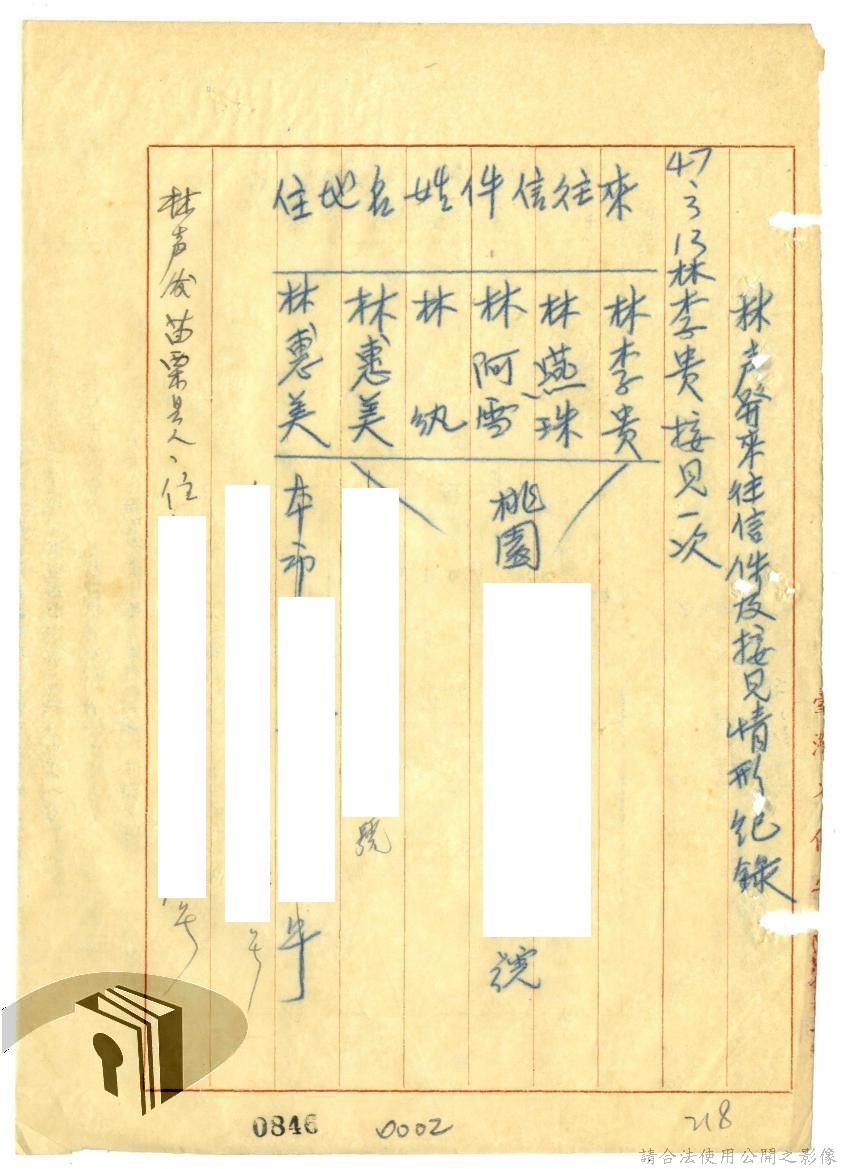 林声發來往信件及接見情形紀錄
47、3、13林李贵接見一次
來往信件姓名地住
林李贵
林燕珠
林阿雪
林 紈
林惠美
林惠美
桃園
號
號
本市
号
林声发苗栗县人、住
号
0846
0002
218
請合法使用公開之影像